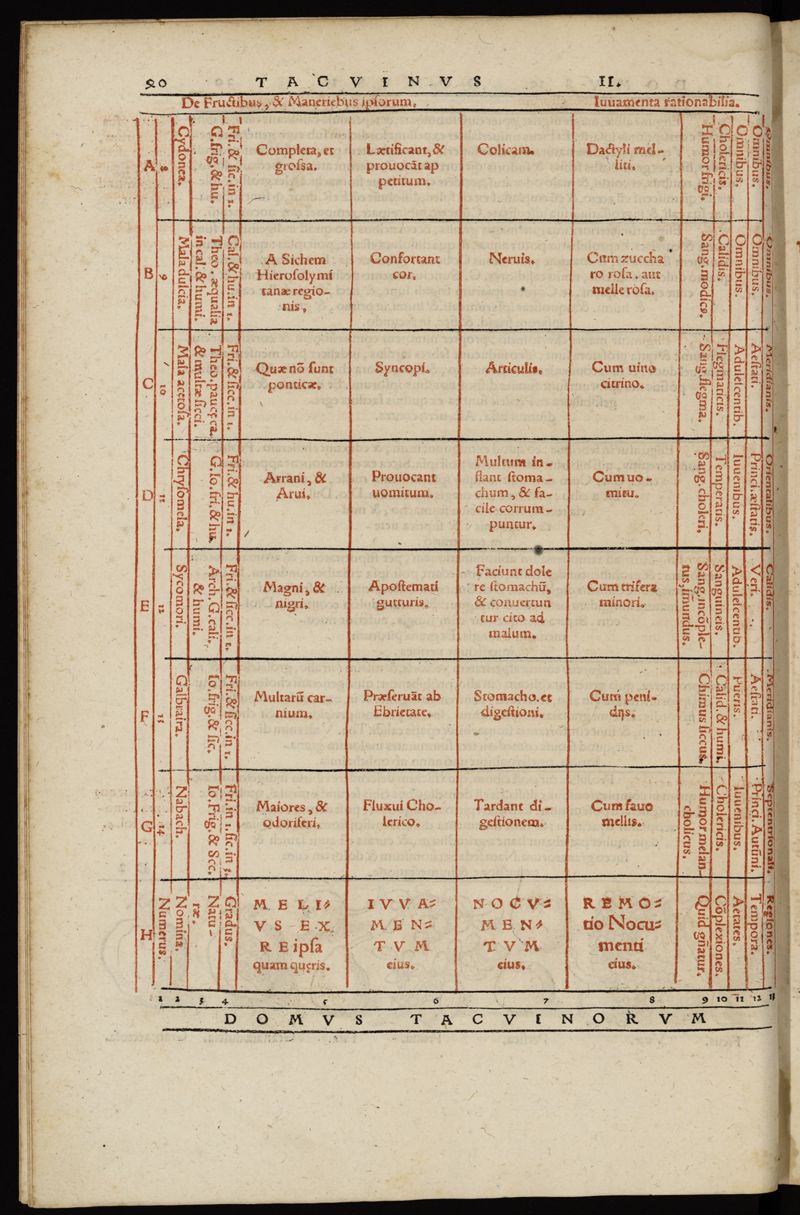 TACVINVS II.
De Fructibus, & Maneriebus ipsorum. Iuuamenta rationabilia.
A
8
Cydonea.
G. frig. & hu.
Fri. & sic. in 1.
Completa, et
grossa.
Lætificant, &
prouocāt ap
petitum.
Colicam.
Dactyli mel-
liti.
Humor frigi.
Cholericis.
Omnibus.
Omnibus.
Omnibus.
B
9
Mala dulcia.
Theo. æqualia
in cal. & humi.
Cal. & hu. in 1.
A Sichem
Hierosolymi
tanæ regio-
nis,
Confortant
cor.
Neruis.
Cum zuccha
ro rosa. aut
melle rosa.
Sang. modic9.
Calidis.
Omnibus.
Omnibus.
Omnibus.
C
10
Mala acetosa.
Theo. paucę ca.
& multæ sicci.
Fri. & sicc. in 1.
Quæ nō sunt
ponticæ.
Syncopi.
Articulis.
Cum uino
citrino.
Sang. flegma.
Flegmaticis.
Adulescentib.
Aestati.
Meridianis.
D
11
Chrysomela.
G. Io. fri. & hu.
Fri. & hu. in 1.
Arrani, &
Arui.
Prouocant
uomitum.
Multum in-
flant stoma-
chum, & fa-
cile corrum-
puntur.
Cum uo-
mitu.
Sang. choleri.
Temperatis.
Iuuenibus.
Princi. æstatis.
Orientalibus.
E
12
Sycomori.
Arch. G. cali.
& humi.
Fri. & sicc. in 1.
Magni, &
nigri.
Apostemati
gutturis.
Faciunt dole
re stomachū,
& conuertun
tur cito ad
malum.
Cum trifera
minori.
Sang. incōple-
tus, īmundus.
Sanguineis.
Adulescentib.
Veri.
Calidis.
F
Galbraira.
Io. frig. & sic.
Fri. & sicc. in 1.
Multarū car-
nium.
Præseruāt ab
Ebrietate.
Stomacho. et
digestioni.
Cum peni-
dijs.
Chimus siccus.
Calid. & humi.
Pueris.
Aestati.
Meridianis.
G
14
Nabach.
Io. Frig. & Scc.
Fri. in 1. sic. in 1.
Maiores, &
odoriferi.
Fluxui Cho-
lerico.
Tardant di-
gestionem.
Cum fauo
mellis.
Humor melan
cholicus.
Cholericis.
Iuuenibus.
Princi. Autūni.
Septentrionali.
H
Numerus.
Nomina.
Natu-
ræ.
Gradus.
MELI-
VS EX
RE ipsa
quam quęris.
IVVA-
MEN-
TVM
eius.
NOCV-
MEN-
TVM
eius.
REMO-
tio Nocu-
menti
eius.
Quid gñatur.
Cōplexiones.
Aetates.
Tempora.
Regiones.
1 2 3 4 5 6 7 8 9 10 11 12 13
DOMVS TACVINORVM